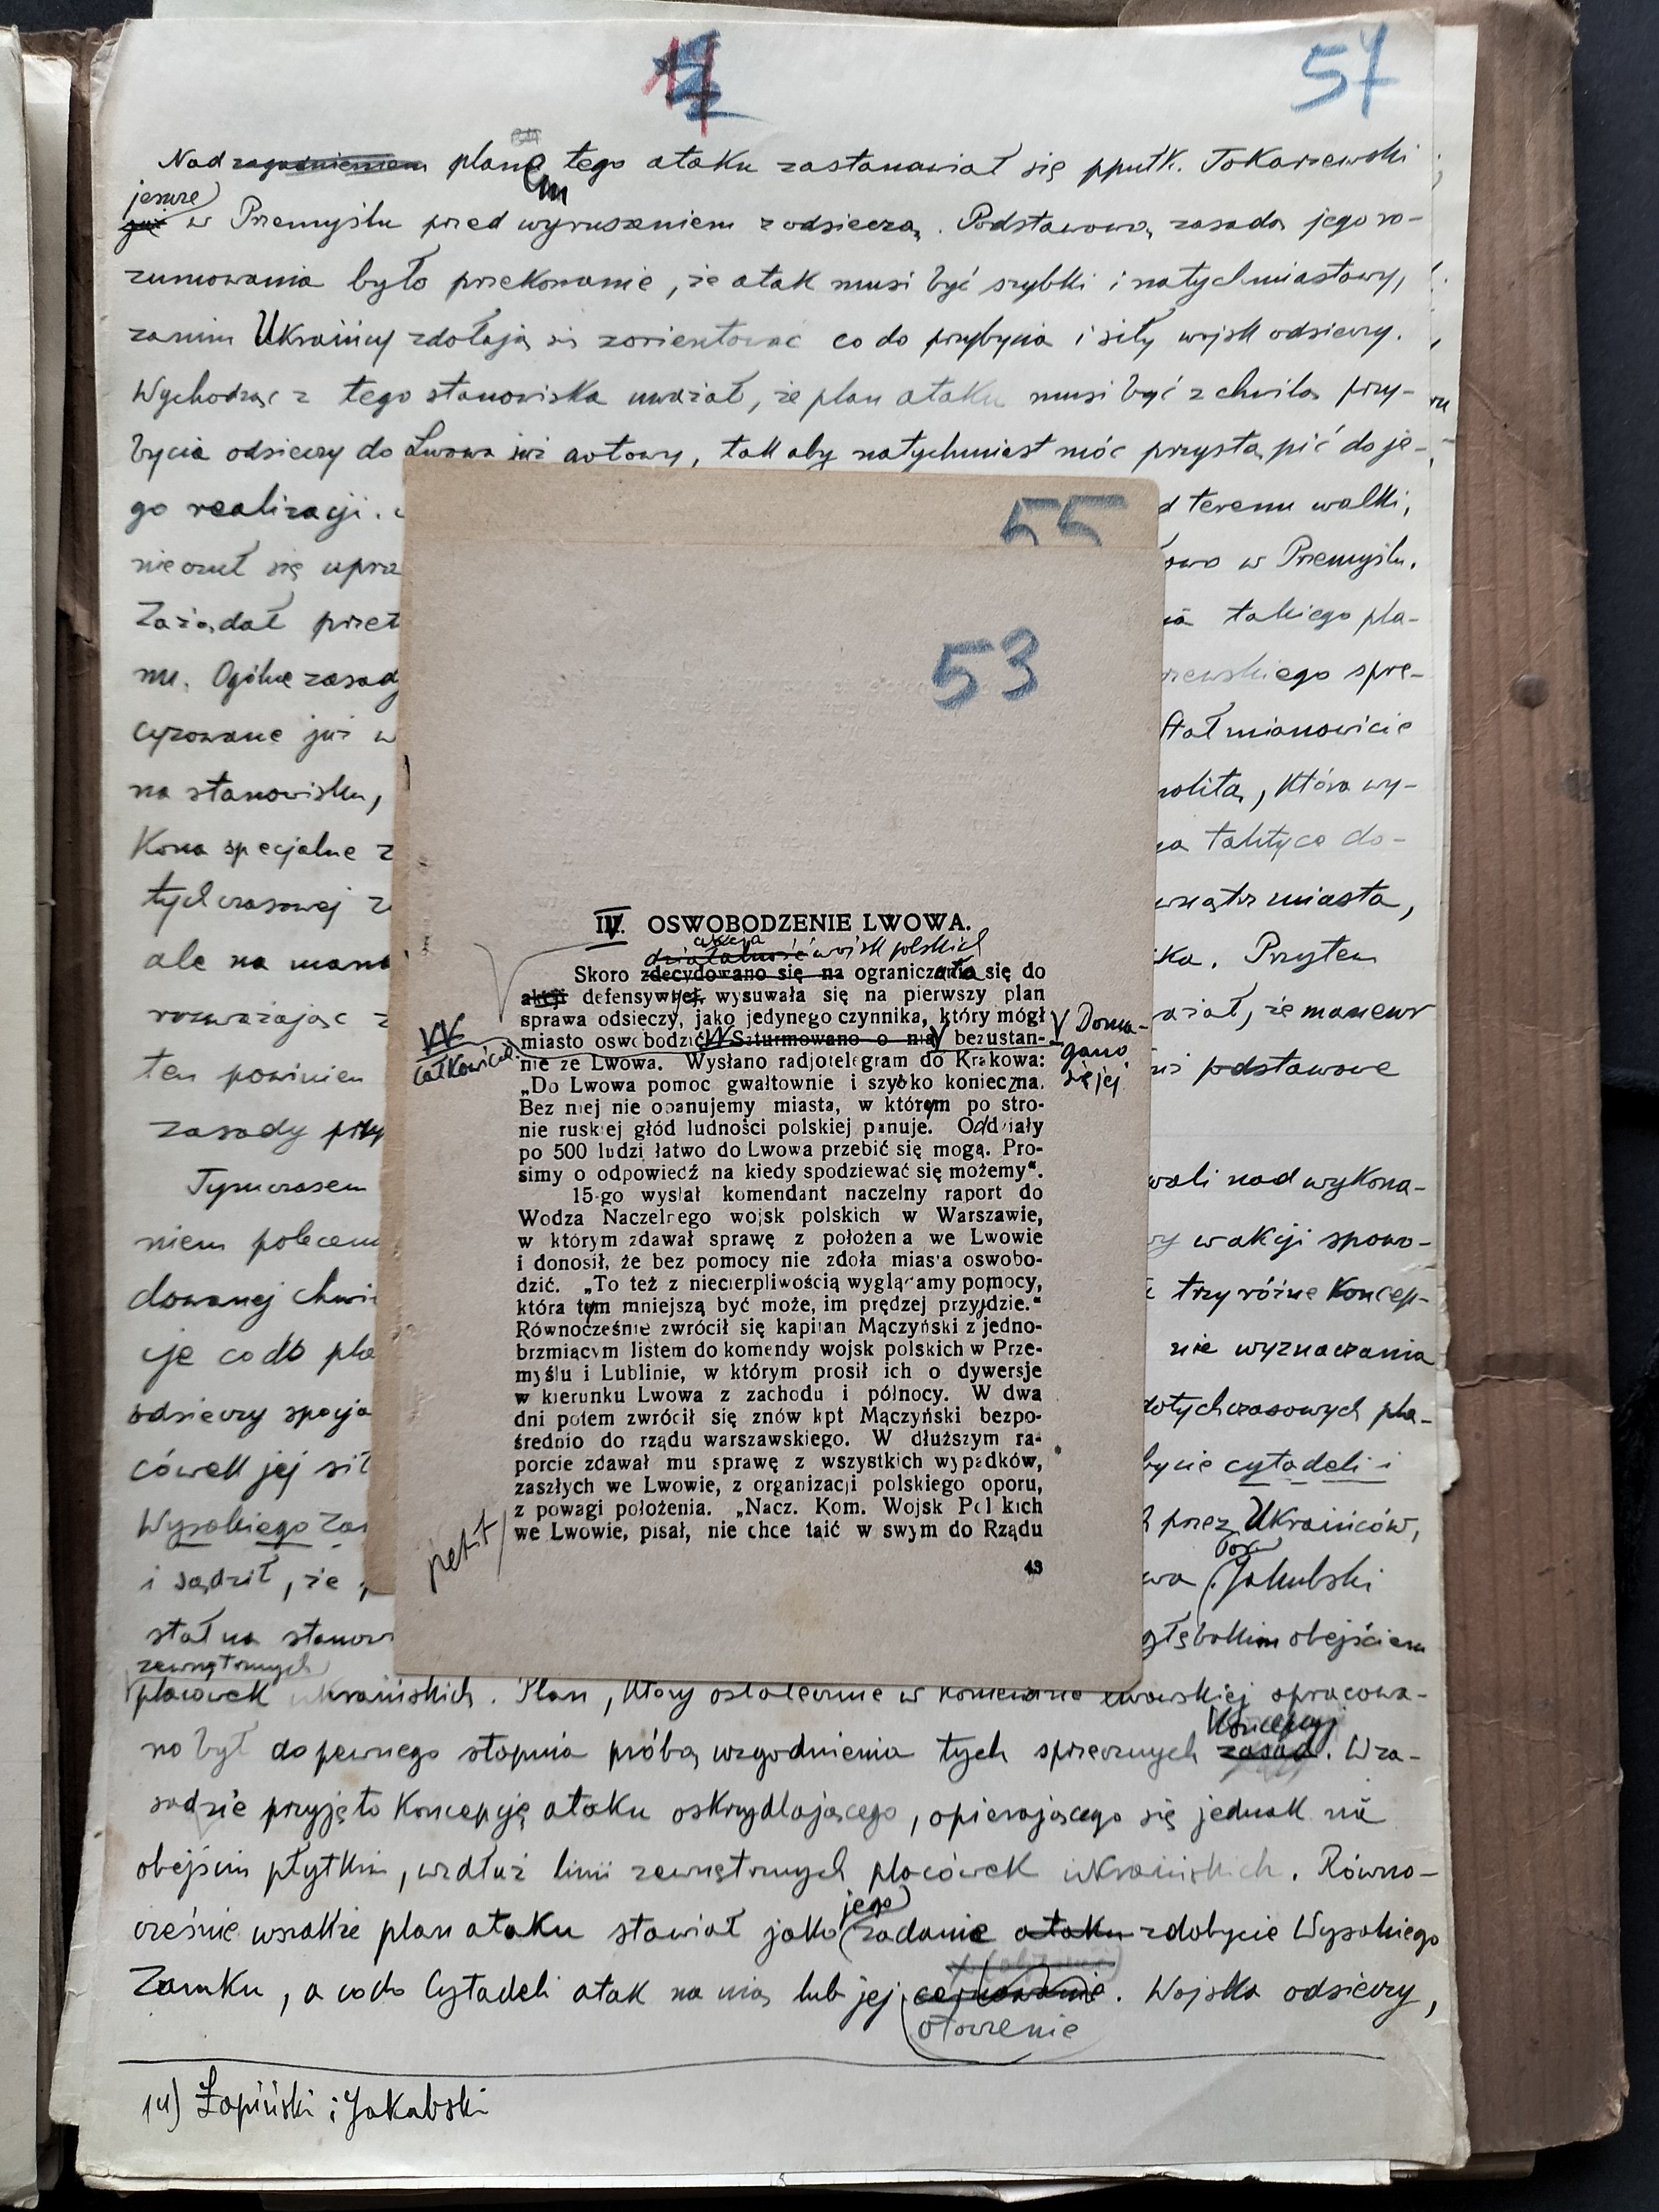 57
Nad zagadnieniem planem tego ataku zastanawiał się ppułk. Tokarzewski
jeszcze
już w Przemyślu przed wyruszeniem z odsieczą. Podstawową zasadą jego ro-
zumowania było przekonanie, że atak musi być szybki i natychmiastowy,
zanim Ukraińcy zdołają się zorientować co do przybycia i siły wojsk odsieczy.
Wychodząc z tego stanowiska uważał, że plan ataku musi być z chwilą przy-
bycia odsieczy do Lwowa już gotowy, tak aby natychmiast móc przystąpić do je-
go realizacji.
d terenu walki,
nie czuł się upra
owo w Przemyślu.
Zażądał przet
takiego pla-
nu. Ogólne zasad
rzewskiego spre-
cyzowane już w
stał mianowicie
na stanowisku,
molitą, która wy-
kona specjalne z
na taktyce do-
tychczasowej z
wnątrz miasta,
ale na man
ika. Przytem
rozważając z
ażał, że manewr
ten powinien
podstawowe
zasady przy
Tymczasem
wali nad wykona-
niem polecen
w akcji spowo-
dowanej chwi
trzy różne koncep-
cje co do pla
nie wyznaczania
odsieczy specja
dotychczasowych pla-
cówek jej sił
bycie cytadeli i
Wysokiego Zam
przez Ukraińców,
i sądził, że
por.
wa Jakubski
stał na stanow
głębokim obejściem
zewnętrznych
placówek ukraińskich. Plan, który ostatecznie w komendzie lwowskiej opracowa-
koncepcyj
no był do pewnego stopnia próbą uzgodnienia tych sprzecznych zasad. W za-
sadzie przyjęto koncepcję ataku oskrzydlającego, opierającego się jednak na
obejściu płytkim, wzdłuż linii zewnętrznych placówek ukraińskich. Równo-
jego
cześnie wszakże plan ataku stawiał jako zadanie ataku zdobycie Wysokiego
Zamku, a co do Cytadeli atak na nią lub jej . Wojska odsieczy,
otoczenie
14) Łapiński i Jakubski
55
53
IV. OSWOBODZENIE LWOWA.
akcja
działalność wojsk polskich
Skoro zdecydowano się na ograniczała się do
akcji defensywnej, wysuwała się na pierwszy plan
sprawa odsieczy, jako jedynego czynnika, który mógł
miasto oswobodzić Szturmowano o nią bezustan-
nie ze Lwowa. Wysłano radjotelegram do Krakowa:
całkowicie.
V Doma-
gano
się jej
„Do Lwowa pomoc gwałtownie i szybko konieczna.
Bez niej nie opanujemy miasta, w którym po stro-
nie ruskiej głód ludności polskiej panuje. Oddziały
po 500 ludzi łatwo do Lwowa przebić się mogą. Pro-
simy o odpowiedź na kiedy spodziewać się możemy“.
15-go wysłał komendant naczelny raport do
Wodza Naczelnego wojsk polskich w Warszawie,
w którym zdawał sprawę z położenia we Lwowie
i donosił, że bez pomocy nie zdoła miasta oswobo-
dzić. „To też z niecierpliwością wyglądamy pomocy,
która tem mniejszą być może, im prędzej przyjdzie.“
Równocześnie zwrócił się kapitan Mączyński z jedno-
brzmiącym listem do komendy wojsk polskich w Prze-
myślu i Lublinie, w którym prosił ich o dywersje
w kierunku Lwowa z zachodu i północy. W dwa
dni potem zwrócił się znów kpt Mączyński bezpo-
średnio do rządu warszawskiego. W dłuższym ra-
porcie zdawał mu sprawę z wszystkich wypadków,
zaszłych we Lwowie, z organizacji polskiego oporu,
z powagi położenia. „Nacz. Kom. Wojsk Polskich
we Lwowie, pisał, nie chce taić w swym do Rządu
petit
43